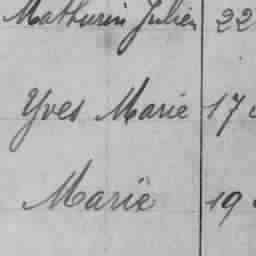 Mathurin Julien 22
Yves Marie 17
Marie 19